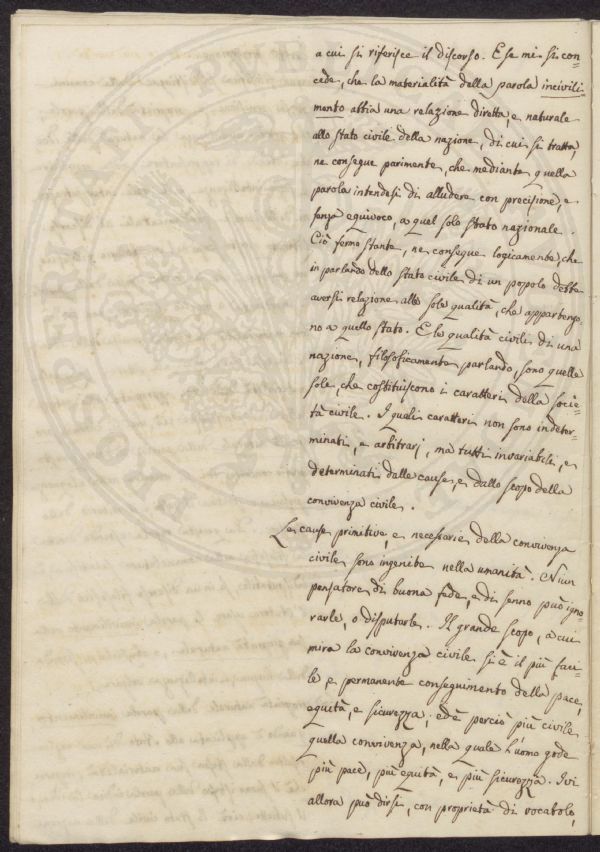 a cui si riferisce il discorso. E se mi si con=
cede, che la materialità della parola incivili=
mento abbia una relazione diretta, e naturale
allo stato civile della nazione, di cui si tratta,
ne consegue parimente, che mediante quella
parola intendesi di alludere con precisione, e
senza equivoco, a quel solo stato nazionale.
Ciò fermo stante, ne consegue logicamente, che
in parlando dello stato civile di un popolo debba
aversi relazione alle sole qualità, che appartengo=
no a quello stato. E le qualità civili di una
nazione, filosoficamente parlando, sono quelle
sole, che costituiscono i caratteri della socie=
tà civile. I quali caratteri non sono indeter=
minati, e arbitrarj, ma tutti invariabili, e
determinati dalle cause, e dallo scopo della
convivenza civile.
Le cause primitive, e necessarie della convivenza
civile sono ingenite nella umanità. Niun
pensatore di buona fede, e di senno può igno=
rarle, o disputarle. Il grande scopo, a cui
mira la convivenza civile si è il più faci=
le e permanente conseguimento della pace,
equità, e sicurezza; ed è perciò più civile
quella convivenza, nella quale l'uomo gode
più pace, più equità, e più sicurezza. Ivi
allora può dirsi, con proprietà di vocabolo,